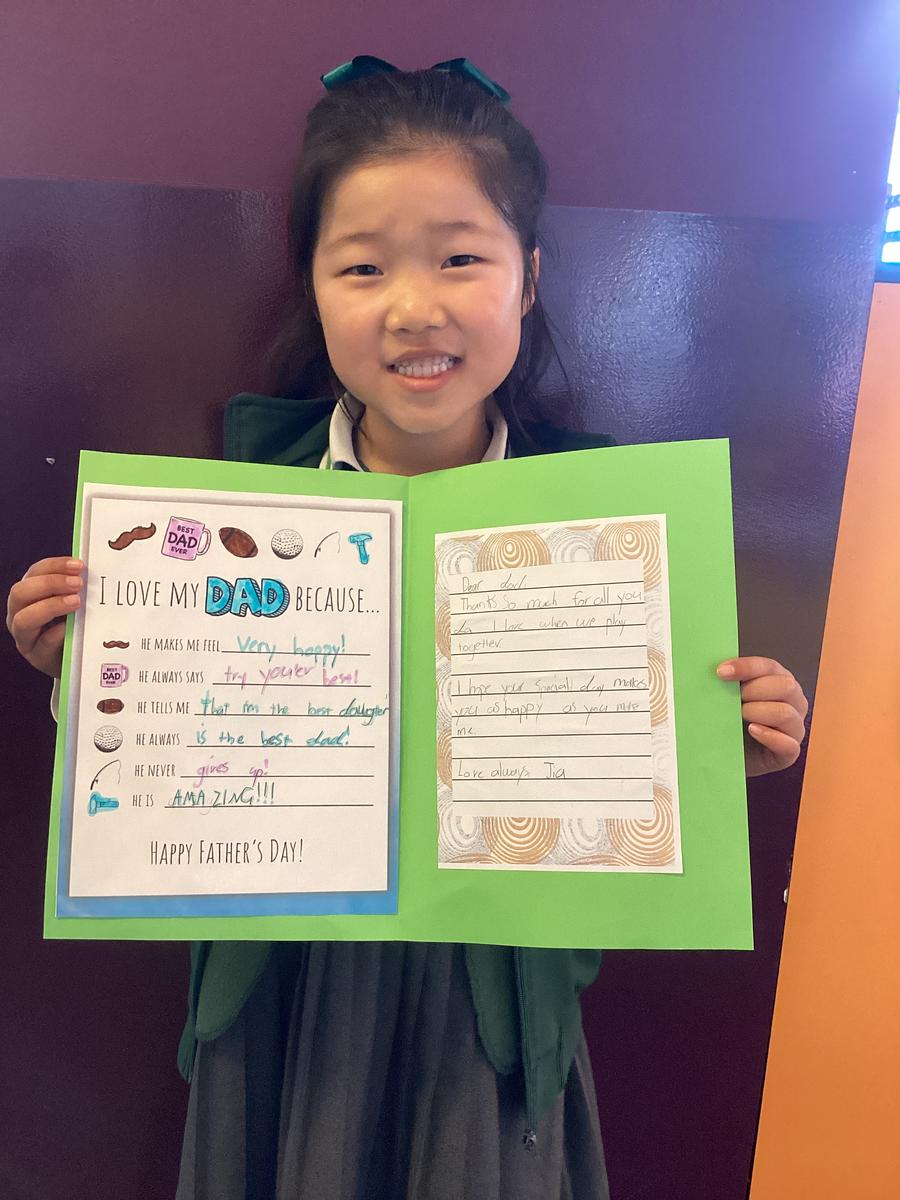 BEST
DAD
EVER
I LOVE MY DAD BECAUSE...
HE MAKES ME FEEL very happy!
BEST
DAD
EVER
HE ALWAYS SAYS try you'er best!
HE TELLS ME that im the best daugter
HE ALWAYS is the best dad!
HE NEVER gives up!
HE IS AMAZING!!!
HAPPY FATHER'S DAY!
Dear dad,
Thanks so much for all you
do. I love when we play
together.
I hope your special day makes
you as happy as you make
me.
Love always Jia